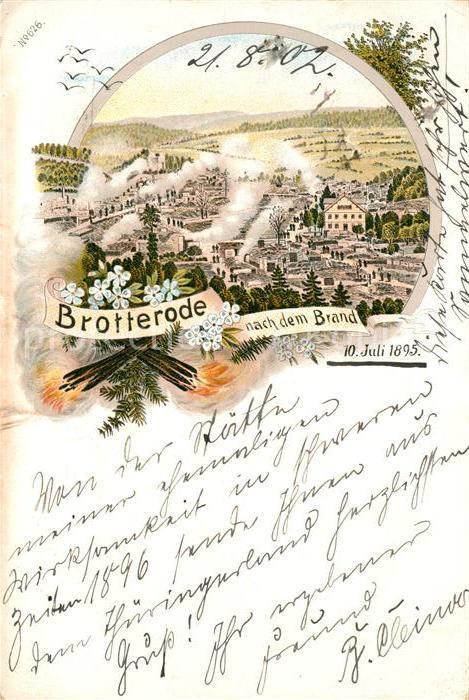 No 626.
21. 8. 02.
Brotterode
nach dem Brand
10. Juli 1895.
Von der Stätte
meiner ehemaligen
Wirksamkeit in schweren
Zeiten 1896 sende Ihnen aus
dem Thüringerland herzlichsten
Gruß! Ihr ergebener
Freund
B.
Diese Karte